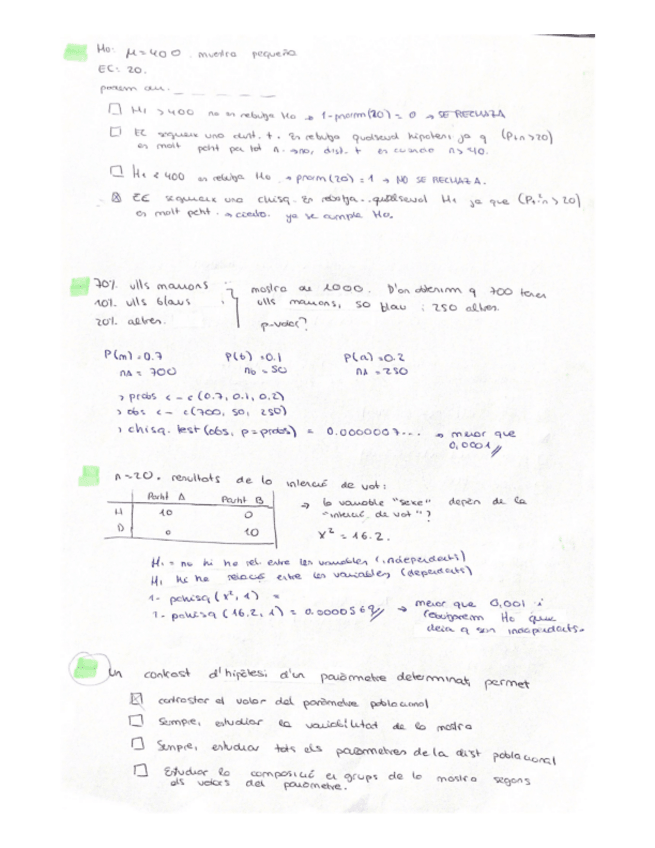 Ho: μ=400. muestra pequeña
EC: 20.
podem dir: _ _ _ _ _ _
H1 >400 no es rebutja Ho → 1-pnorm(20) = 0 → SE RECHAZA
EC segueix una dist. t. Es rebutja qualsevol hipòtesi ja q (P t,n >20)
es molt petit per tot n. → no, dist. t es cuando n>40.
H1 < 400 es rebutja Ho. → pnorm(20) = 1 → NO SE RECHAZA.
EC segueix una chisq. Es rebutja.. qualsevol H1 ja que (P >20)
es molt petit. → cierto. ya se cumple Ho.
70% ulls marrons
10% ulls blaus
20% altres.
mostra de 1000. D'on obtenim q 700 tenen
ulls marrons, 50 blau i 250 altres.
p-valor?
P(m) = 0.7 P(b) = 0.1 P(a) = 0.2
nA = 700 nb = 50 nA = 250
> probs <- c(0.7, 0.1, 0.2)
> obs <- c(700, 50, 250)
> chisq.test(obs, p=probs) = 0.0000007... → menor que
0,0001
n=20. resultats de la intenció de vot:
Partit A Partit B
H 10 0
D 0 10
→ la variable "sexe" depèn de la
"intenció de vot"?
x² = 16.2.
H1 = no hi ha rel. entre les variables (independents)
H1 hi ha relació entre les variables (dependents)
1- pchisq(x², 1) =
1- pchisq(16.2, 1) = 0.0000569 → menor que 0,001 i
rebutjarem Ho que
deia q son independents.
Un contrast d'hipòtesi d'un paràmetre determinat, permet
contrastar el valor del paràmetre poblacional
Sempre, estudiar la variabilitat de la mostra
Sempre, estudiar tots els paràmetres de la dist poblacional
Estudiar la composició en grups de la mostra segons
els valors del paràmetre.